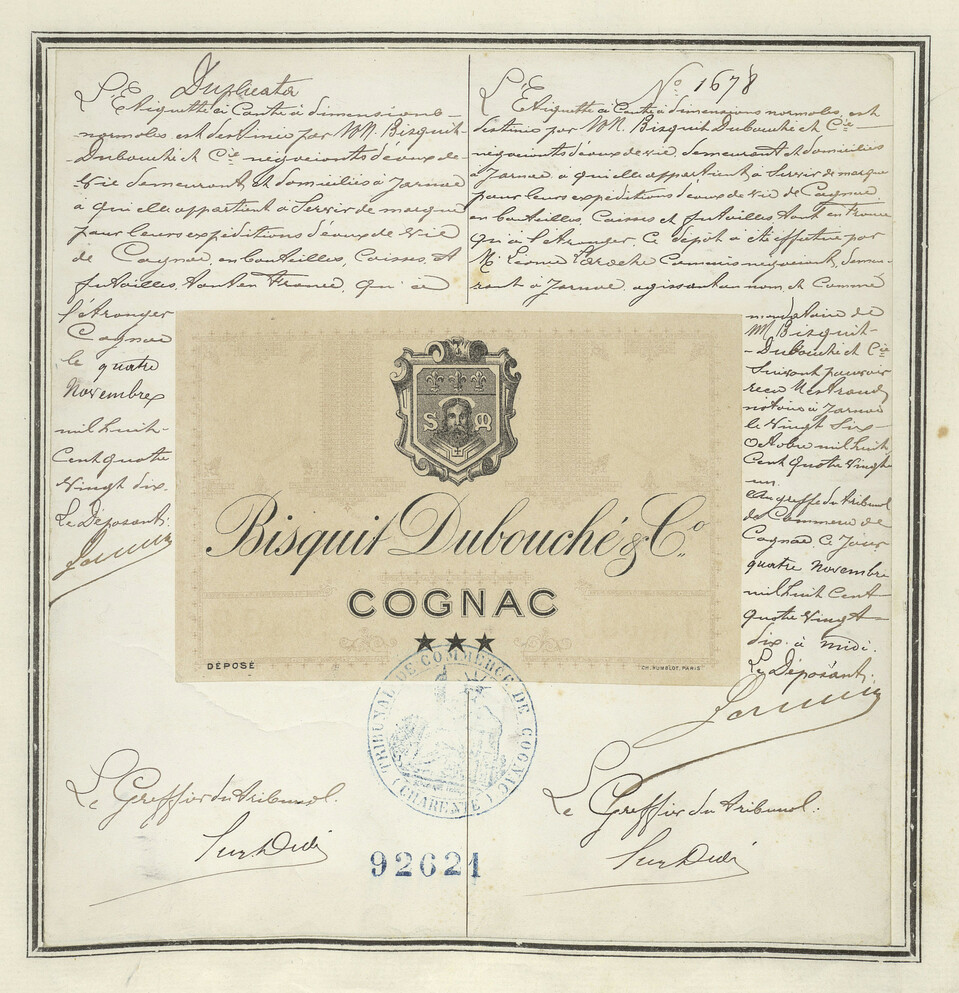 Duplicata
L'Etiquette ci Contre à dimensions
normales, est destinée par MM. Bisquit-
Dubouché et Cie négociants d'eaux-de-
-vie demeurant et domiciliés à Jarnac
à qui elle appartient à Servir de marque
pour leurs expéditions d'eaux de vie
de Cognac, en bouteilles, Caisses, et
futailles, tant en France, qu'à
l'étranger
Cognac
le quatre
Novembre
mil huit-
Cent quatre
Vingt dix.
Le Déposant.
No 1678
L'Etiquette ci Contre à dimensions normales, est
destinée par MM. Bisquit Dubouché et Cie
négociants d'eaux de vie, demeurant et domiciliés
à Jarnac à qui elle appartient à Servir de marque
pour leurs expéditions d'eaux de vie de Cognac
en bouteilles, Caisses et futailles tant en France
qu'à l'étranger. Ce dépôt a été effectué par
M. Léonce Laroche Commis négociant, demeu-
rant à Jarnac, agissant au nom et Comme
mandataire de
MM Bisquit-
-Dubouché et Cie
Suivant pouvoir
reçu
notaire à Jarnac
le Vingt Six
Octobre mil huit
Cent Quatre Vingt
un.
Au greffe du tribunal
de Commerce de
Cognac. Ce Jour
quatre Novembre
mil huit Cent
Quatre Vingt
dix. à midi.
Le Déposant.
S M
Bisquit Dubouché & Co.
COGNAC
★★★
DÉPOSÉ
CH. HUMBLOT, PARIS
TRIBUNAL DE COMMERCE DE COGNAC
(CHARENTE)
Le Greffier du tribunal.
Le Greffier du tribunal.
92621